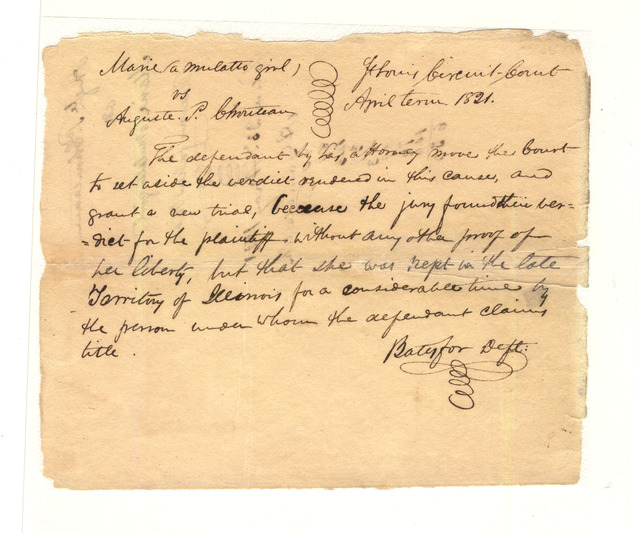 Marie (a mulatto girl)
vs
Auguste. P. Chouteau
St Louis Circuit-Court
April term 1821.
The defendant by his attorney move the Court
to set aside the verdict rendered in this cause, and
grant a new trial, because the jury found their ver-
-dict for the plaintiff, without any other proof of
her liberty, but that she was kept in the late
Territory of Illinois for a considerable time by
the person under whom the defendant claims
title.
Bates for Deft.